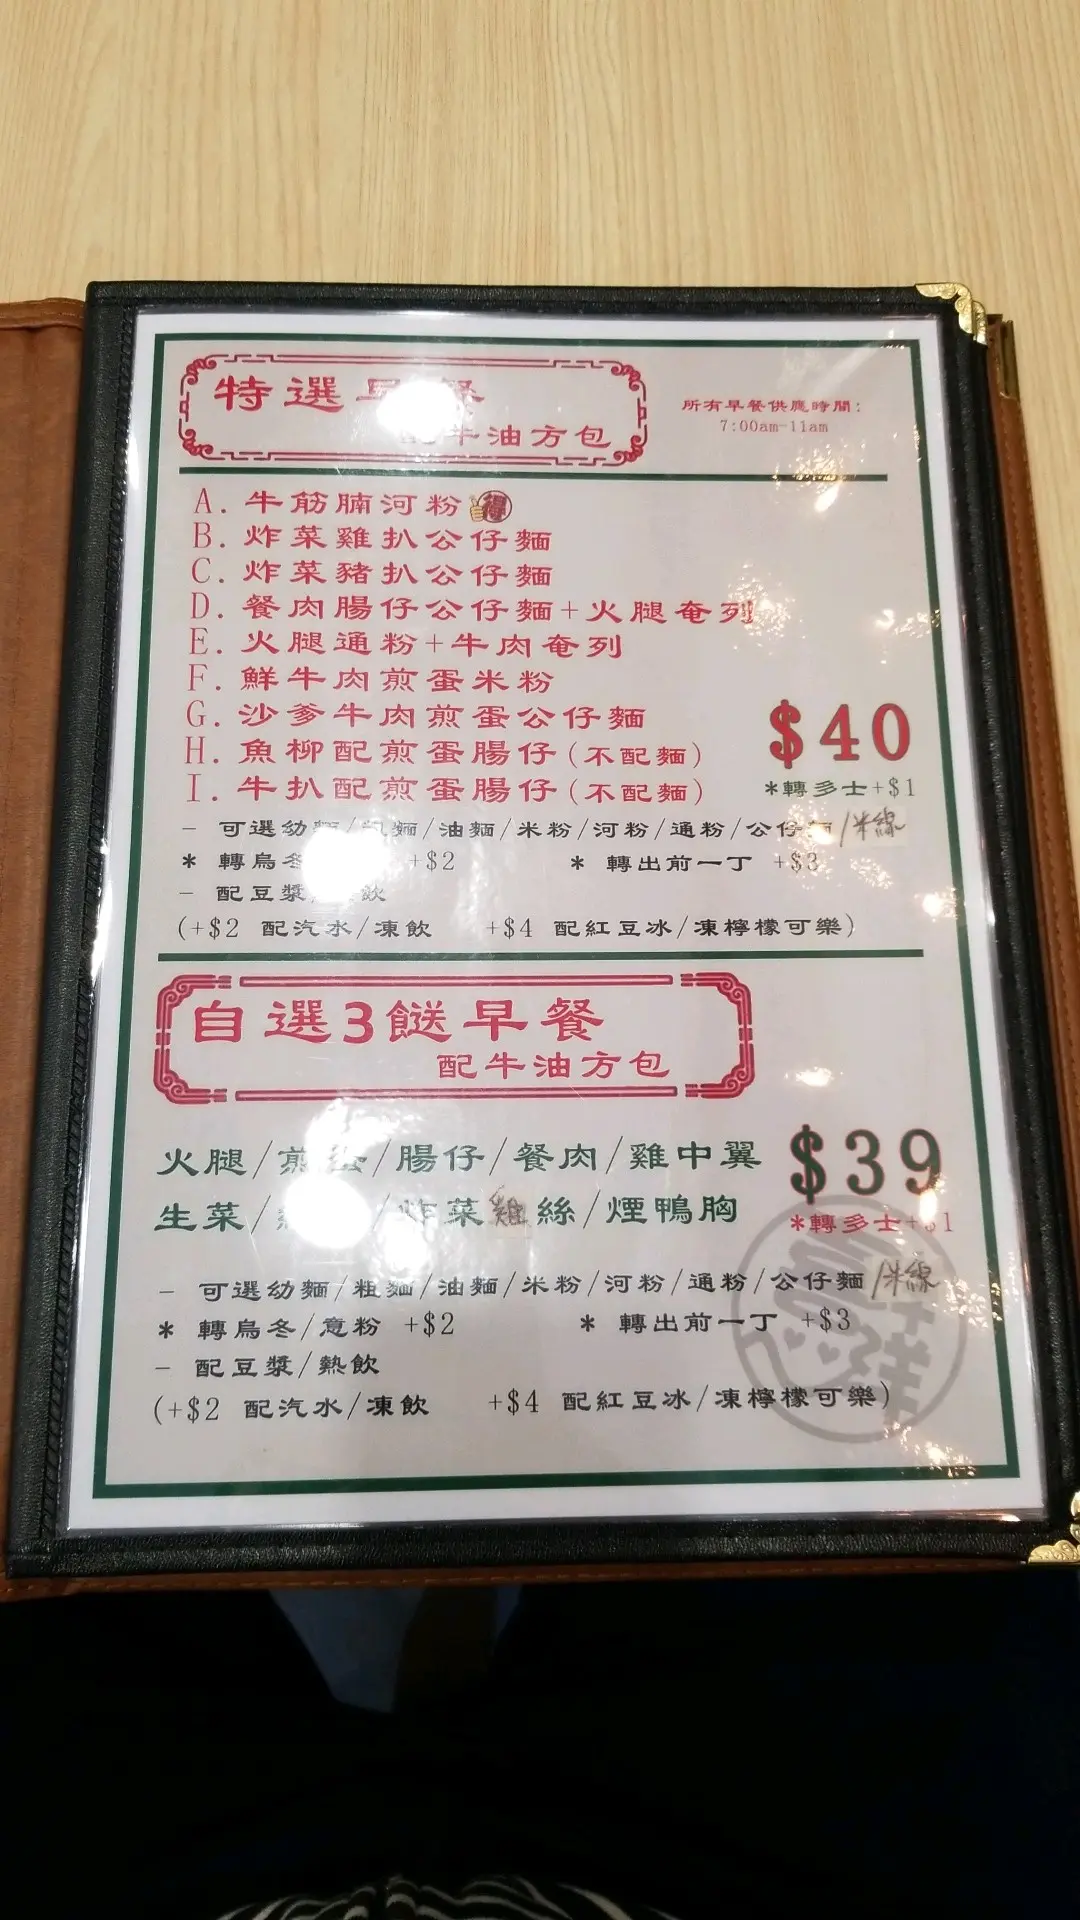 特選早餐
配牛油方包
所有早餐供應時間：
7:00am-11am
A. 牛筋腩河粉 得
B. 炸菜雞扒公仔麵
C. 炸菜豬扒公仔麵
D. 餐肉腸仔公仔麵+火腿奄列
E. 火腿通粉+牛肉奄列
F. 鮮牛肉煎蛋米粉
G. 沙爹牛肉煎蛋公仔麵
H. 魚柳配煎蛋腸仔(不配麵)
I. 牛扒配煎蛋腸仔(不配麵)
$40
*轉多士+$1
- 可選幼麵/粗麵/油麵/米粉/河粉/通粉/公仔麵/米線
* 轉烏冬 +$2 * 轉出前一丁 +$3
- 配豆漿/熱飲
(+$2 配汽水/凍飲 +$4 配紅豆冰/凍檸檬可樂)
自選3餸早餐
配牛油方包
火腿/煎蛋/腸仔/餐肉/雞中翼
生菜/ /炸菜雞絲/煙鴨胸
$39
*轉多士+$1
- 可選幼麵/粗麵/油麵/米粉/河粉/通粉/公仔麵/米線
* 轉烏冬/意粉 +$2 * 轉出前一丁 +$3
- 配豆漿/熱飲
(+$2 配汽水/凍飲 +$4 配紅豆冰/凍檸檬可樂)